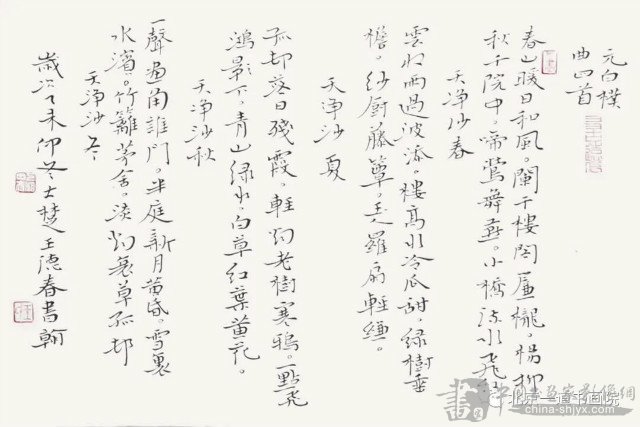 元白樸
曲四首
春山暖日和風。闌干樓閣簾櫳。楊柳
秋千院中。啼鶯舞燕。小橋流水飛紅
天淨沙春
雲收雨過波添。樓高水冷瓜甜。綠樹垂
檐。紗廚藤簟。玉羅扇輕縑。
天淨沙夏
孤邨落日殘霞。輕烟老樹寒鴉。一點飛
鴻影下。青山綠水。白草紅葉黃花。
天淨沙秋
一聲畫角譙門。半庭新月黃昏。雪裏
水濱。竹籬茅舍。淡烟衰草孤邨
天淨沙冬
歲次丁未仲冬古楚王德春書翰
北京一道书画院
china-shjyx.com